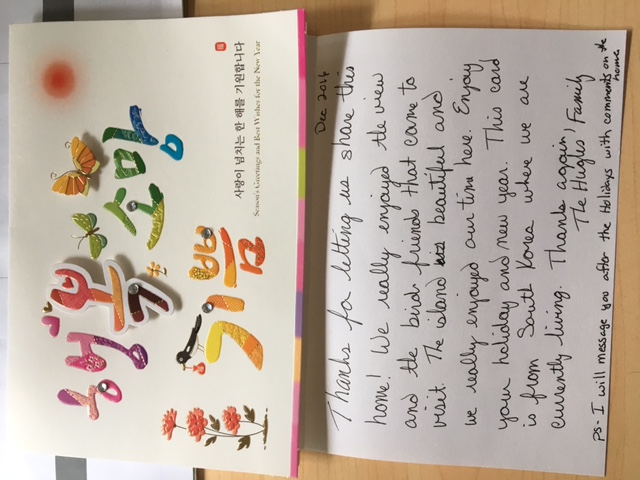 행복
소망
기쁨
사랑이 넘치는 한 해를 기원합니다
Season's Greetings and Best Wishes for the New Year
Dec 2014
Thanks for letting us share this
home! We really enjoyed the view
and the bird friends that came to
visit. The island is beautiful and
we really enjoyed our time here. Enjoy
your holiday and new year. This card
is from South Korea where we are
currently living. Thanks again,
The Hughs Family
PS- I will message you after the Holidays with comments on the
home.